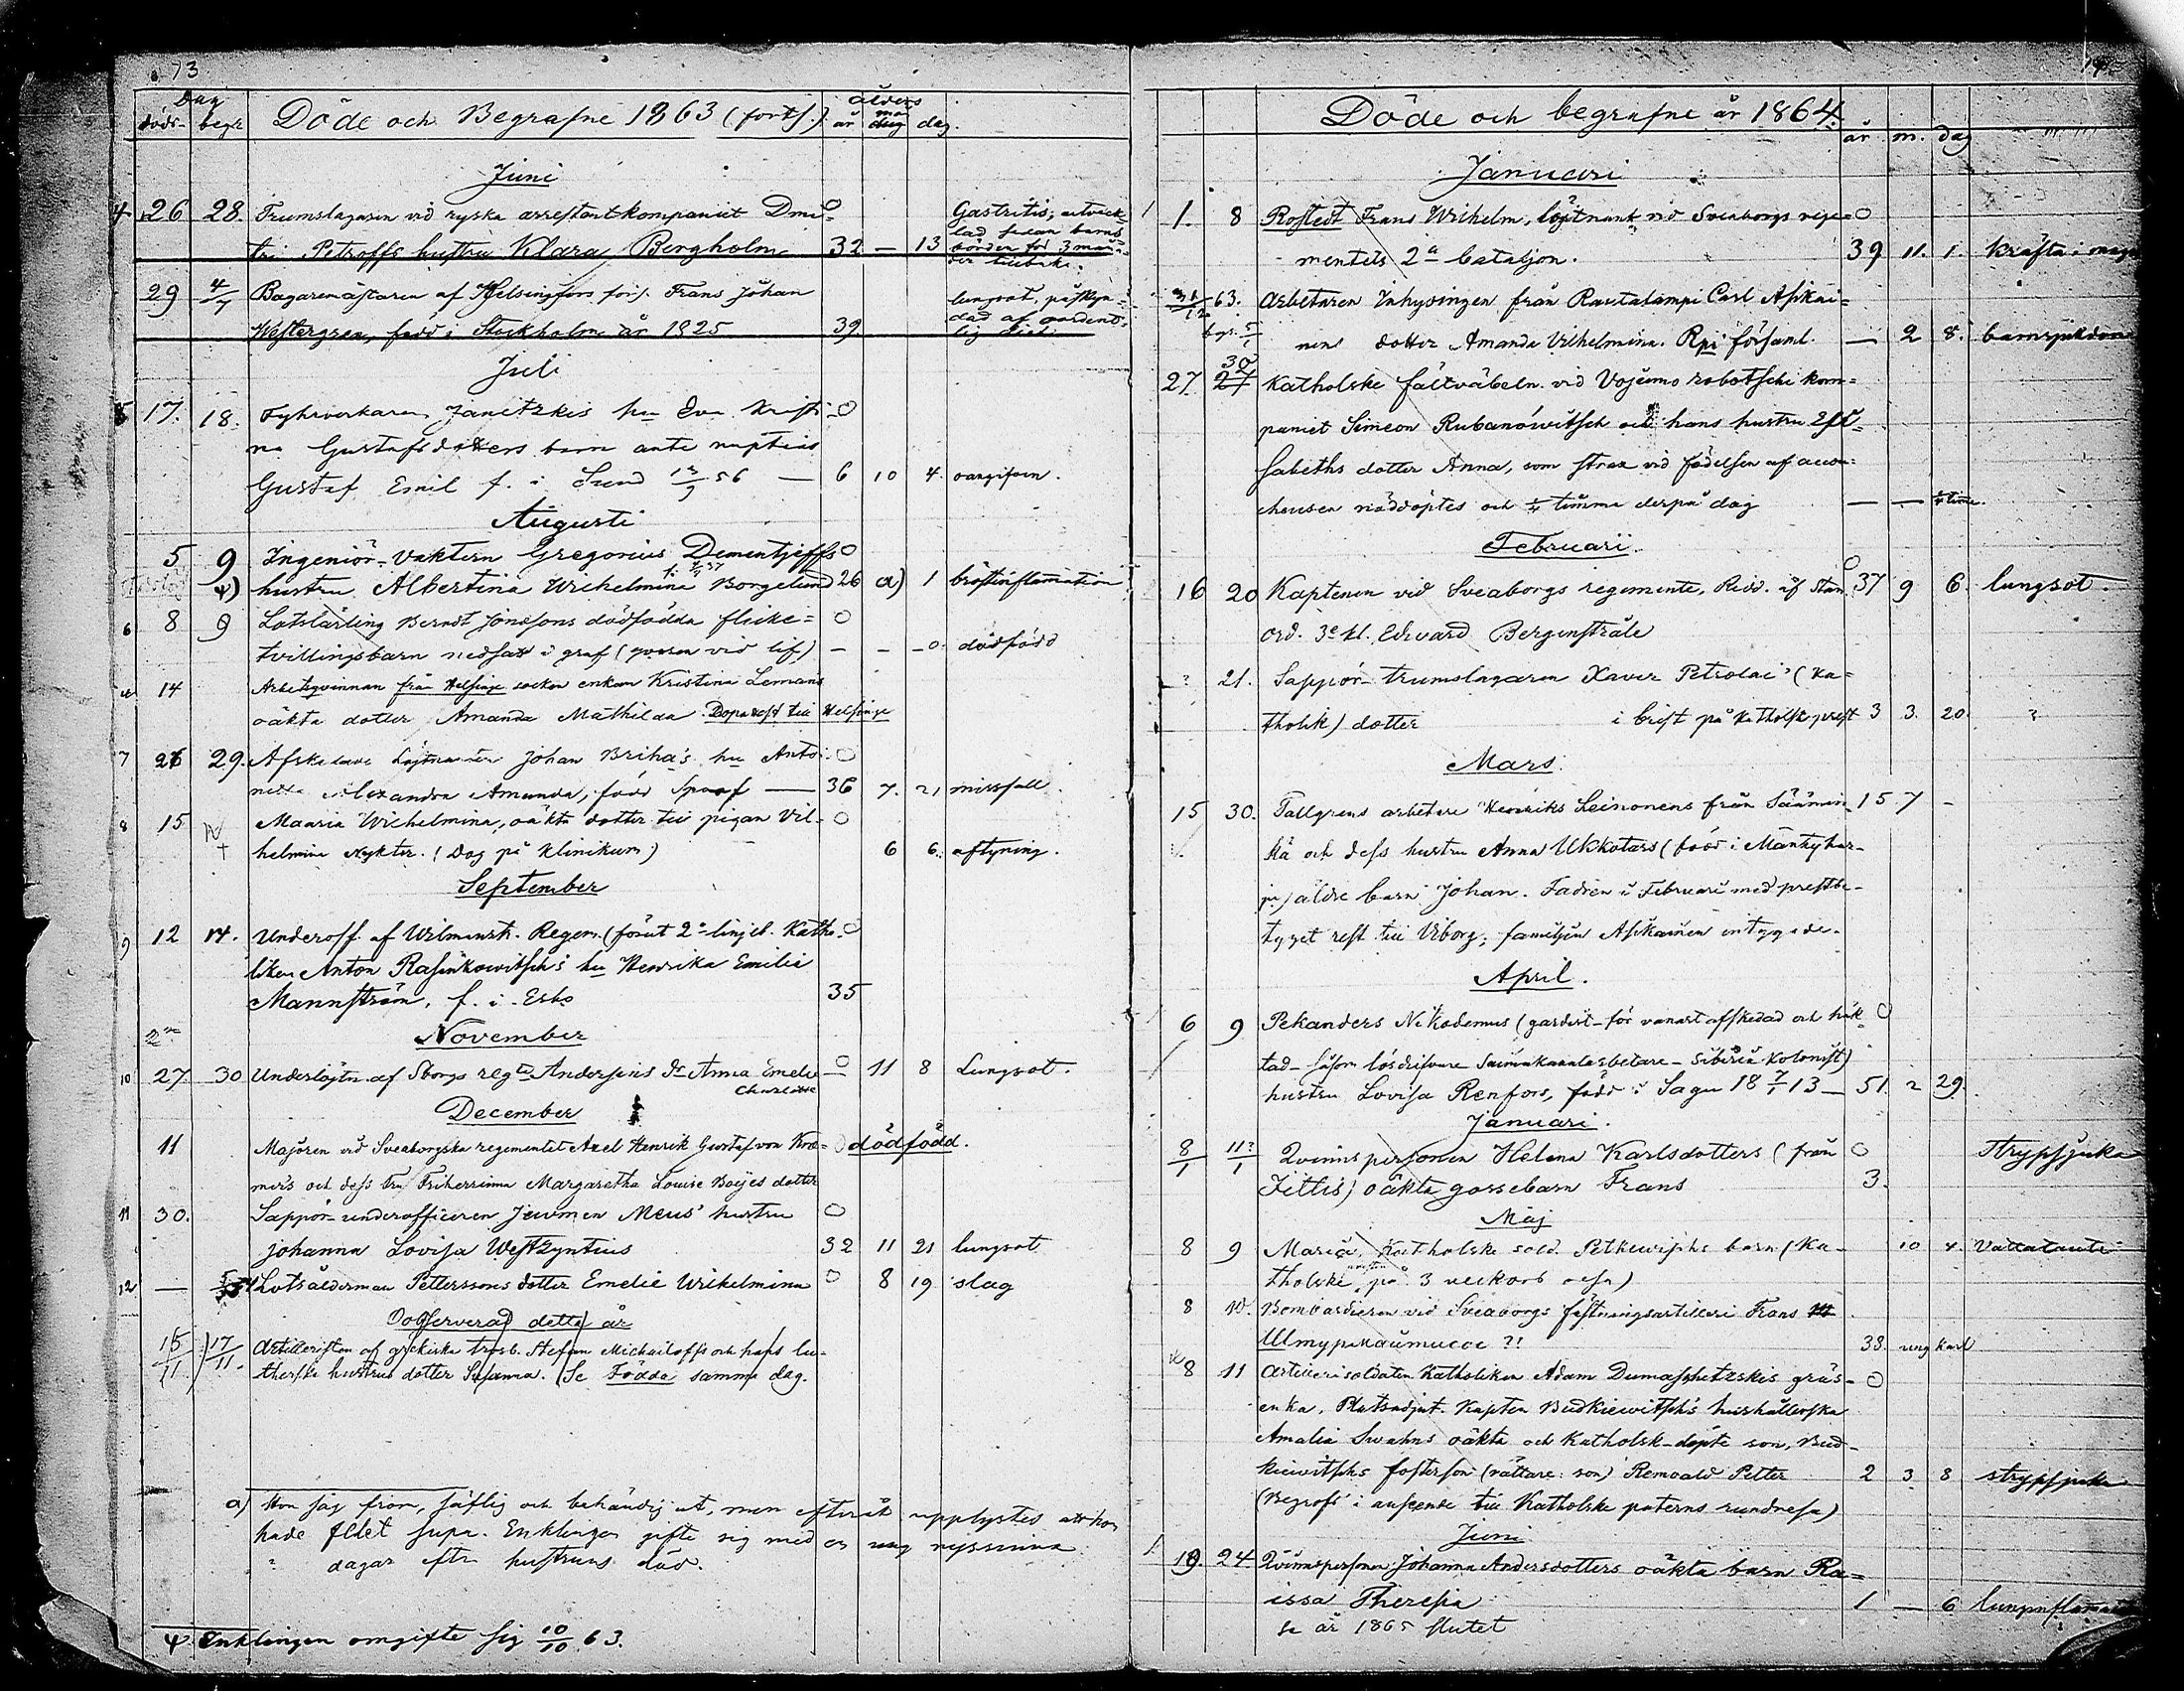 73
Dag
döds- begr
Döde och Begrafne 1863 (forts.)
ålders
år mån dag.
Juni
4 26 28. Trumslagaren vid ryska arrestantkompaniet Dmi-
tri Petroffs hustru Klara Bergholm 32 — 13
Gastritis, utveck-
lad sedan barns-
börden för 3 måna-
der tillbaka.
29 4/7 Bagaremästaren af Helsingfors förs. Frans Johan
Westergren, född i Stockholm år 1825 39.
lungsot, påskyn-
dad af
Juli
5 17. 18. Fyrverkaren Janetzkis hu Eva Kristi- O
na Gustafsdotters barn ante nuptias
Gustaf Emil f. i Sund 13/9 56 — 6 10 4. oangifven.
Augusti
5 9 Ingeniör-vaktern Gregorius Dementjeffs O
ψ) hustru Albertina Wilhelmina Borgelund 26 a) 1 bröstinflamation
6 8 9 Lotslärling Berndt Jonssons dödfödda flicke= O
tvillingsbarn nedsatt i graf (qvaran vid lif) — - - 0 dödfödd
14 Arbetsqvinnan från Helsinge socken enkan Kristina Lemans
oäkta dotter Amanda Mathilda. till Helsinge
7 26 29. Afskedade Löjtnanten Johan Briha's hu Anto- O
netta Alexandra Amanda, född Spoof — 36 7. 21 missfall.
8 15 Maaria Wilhelmina, oäkta dotter till pigan Vil- O
helmina Nykter. (Dog på Klinikum) 6 6. aftyning.
September
9 12 14. Underoff. af Wilmanstr. Regem. (förut 2a linjeb. Katho- O
liken Anton Rasinkowitsch's hu Henrika Emilia
Mannström, f. i Esbo 35
November
10 27. 30 Underlöjtn. af Sborgs regte Andersins dr Anna Emelie O — 11 8 Lungsot.
Charlotta
December
11 Majoren vid Sveaborgska regementet Axel Henrik Gustaf von Kræ- O dödfödd.
mers och dess Fru Friherrinna Margaretha Louise Boijes dotter
11 30. Sappör-underofficeren Jeumen Meus' hustru O
Johanna Lovisa Westzyntius 32 11 21 lungsot
12 — Lotsålderman Petterssons dotter Emelie Wilhelmina O 8 19 slag
Oobserverad detta år
15/11 17/11. Artilleristen af grekiska trosb. Stefan Michailoffs och hans lu-
therska hustrus dotter Susanna. (Se Födda samma dag.
a) Hon såg from, säflig och behändig ut, men efteråt upplystes att hon
hade supa. Enklingen gifte sig med en ung ryssinna
? dagar efter hustruns död.
ψ Enklingen omgifte sig 10/10 63.
Döde och begrafne år 1864.
år m. dag
Januari
1 1. 8 Rostedt Frans Wilhelm, löjtnant vid Sveaborgs rege= O
mentets 2a bataljon. 39 11. 1. kräfta i
31/12 63. Arbetaren Inhysingen från Rautalampi Carl Asikai=
begr. 5/1 nens dotter Amanda Vilhelmina. Rpi församl. — 2 8. barnsjukdom
30
27. 27 Katholske fältväbeln vid Vojenno robotschi kom=
paniet Simeon Rubanowitsch och hans hustru Eli=
sabeths dotter Anna, som strax vid födelsen af accou=
cheusen nöddöptes och ¼ timma derpå dog — — ¼ timme.
Februari
16 20 Kaptenen vid Sveaborgs regemente, Ridd. af Stan. 37 9 6. lungsot.
ord. 3e kl. Edvard Bergenstråle
? 21. Sappör-trumslagaren Xaver Petrolai (ka=
tholik) dotter i brist på Katholsk prest 3 3. 20. ?
Mars
15 30. Tallgrens arbetare Henriks Leinonens från Säämin- 15 7 -
kä och dess hustru Anna Ukkotars (född i Mäntyhar-
ju) äldre barn Johan. Fadren i Februari med prestbe-
tyget rest till Viborg; familjen Asikainen intygade.
April.
6 9 Pekanders Nikodemus (gardist - för vanart afskedad och häk- O
tad - såsom lösdrifvare Saimakanalarbetare - Siberia kolonist)
hustru Lovisa Renfors, född i Sagu 18 7/1 13 — 51. 2 29.
Januari.
8/1 11?/1 Qvinnspersonen Helena Karlsdotters (från O Strypsjuka
Tittis) oäkta gossebarn Frans 3.
Maj
8 9 Maria, Katholske sold. Petkewischs barn (Ka- 10 4.
tholske på 3 veckors resa)
8 10. Bombardieren vid Sveaborgs fästningsartilleri Frans
?! 38. ung karl
8 11 Artillerisoldaten Katholiken Adam Dumaschetzskis gräs- O
enka, Platsadjut. Kapten Budkiewitsch's hushållerska
Amalia Swahns oäkta och Katholsk-döpte son, Bud-
kiewitschs fosterson (rättare: son) Remoald Petter 2 3 8 strypsjuka
(Begrofs i anseende till Katholske paterns rundresa)
Juni
19. 24. Qvinnspersonen Johanna Andersdotters oäkta barn Ra=
issa Theresia 1 — 6 lunginflamation
se år 1865 slutet